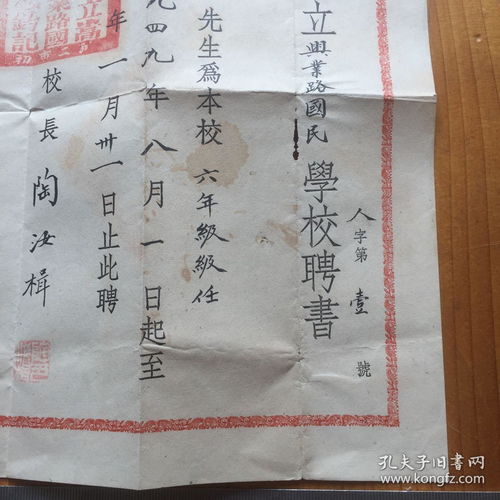 立興業路國民學校聘書
人字第壹號
先生爲本校六年級級任
九四九年八月一日起至
年一月卅一日止此聘
校長陶汝楫
孔夫子旧书网
www.kongfz.com